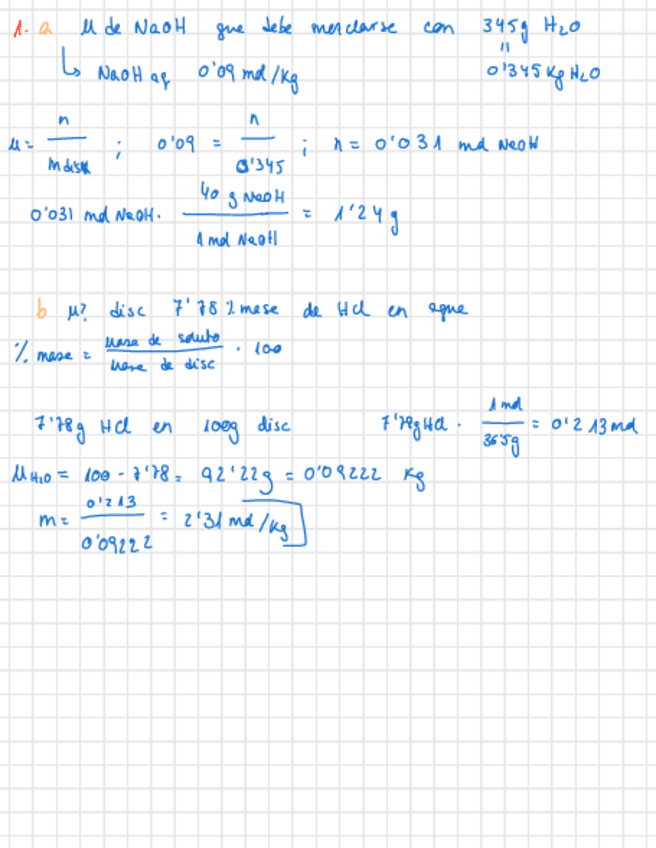 1. a M de NaOH que debe mezclarse con 345g H₂O
"
↳ NaOH aq 0'09 mol/kg 0'345 Kg H₂O
m = n / mdisv ; 0'09 = n / 0'345 ; n = 0'031 mol NaOH
0'031 mol NaOH · 40 g NaOH / 1 mol NaOH = 1'24 g
b M? disc 7'78 % masa de HCl en agua
% masa = masa de soluto / masa de disc · 100
7'78g HCl en 100g disc 7'78g HCl · 1 mol / 36'5g = 0'213 mol
M H₂O = 100 - 7'78 = 92'22g = 0'09222 Kg
m = 0'213 / 0'09222 = 2'31 mol/kg